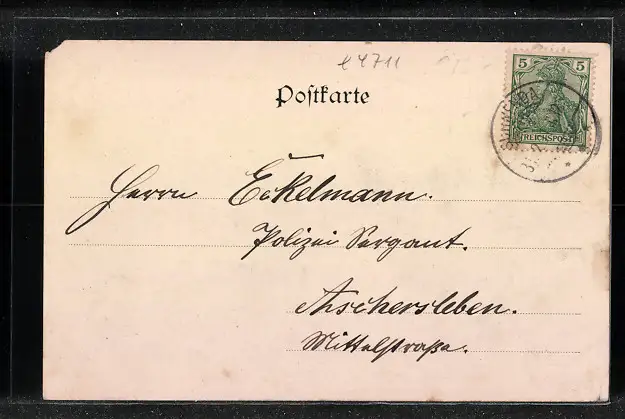 e4711
Postkarte
5 5
REICHSPOST
Herrn Eckelmann.
Polizei Sergant.
Aschersleben.
Mittelstraße.